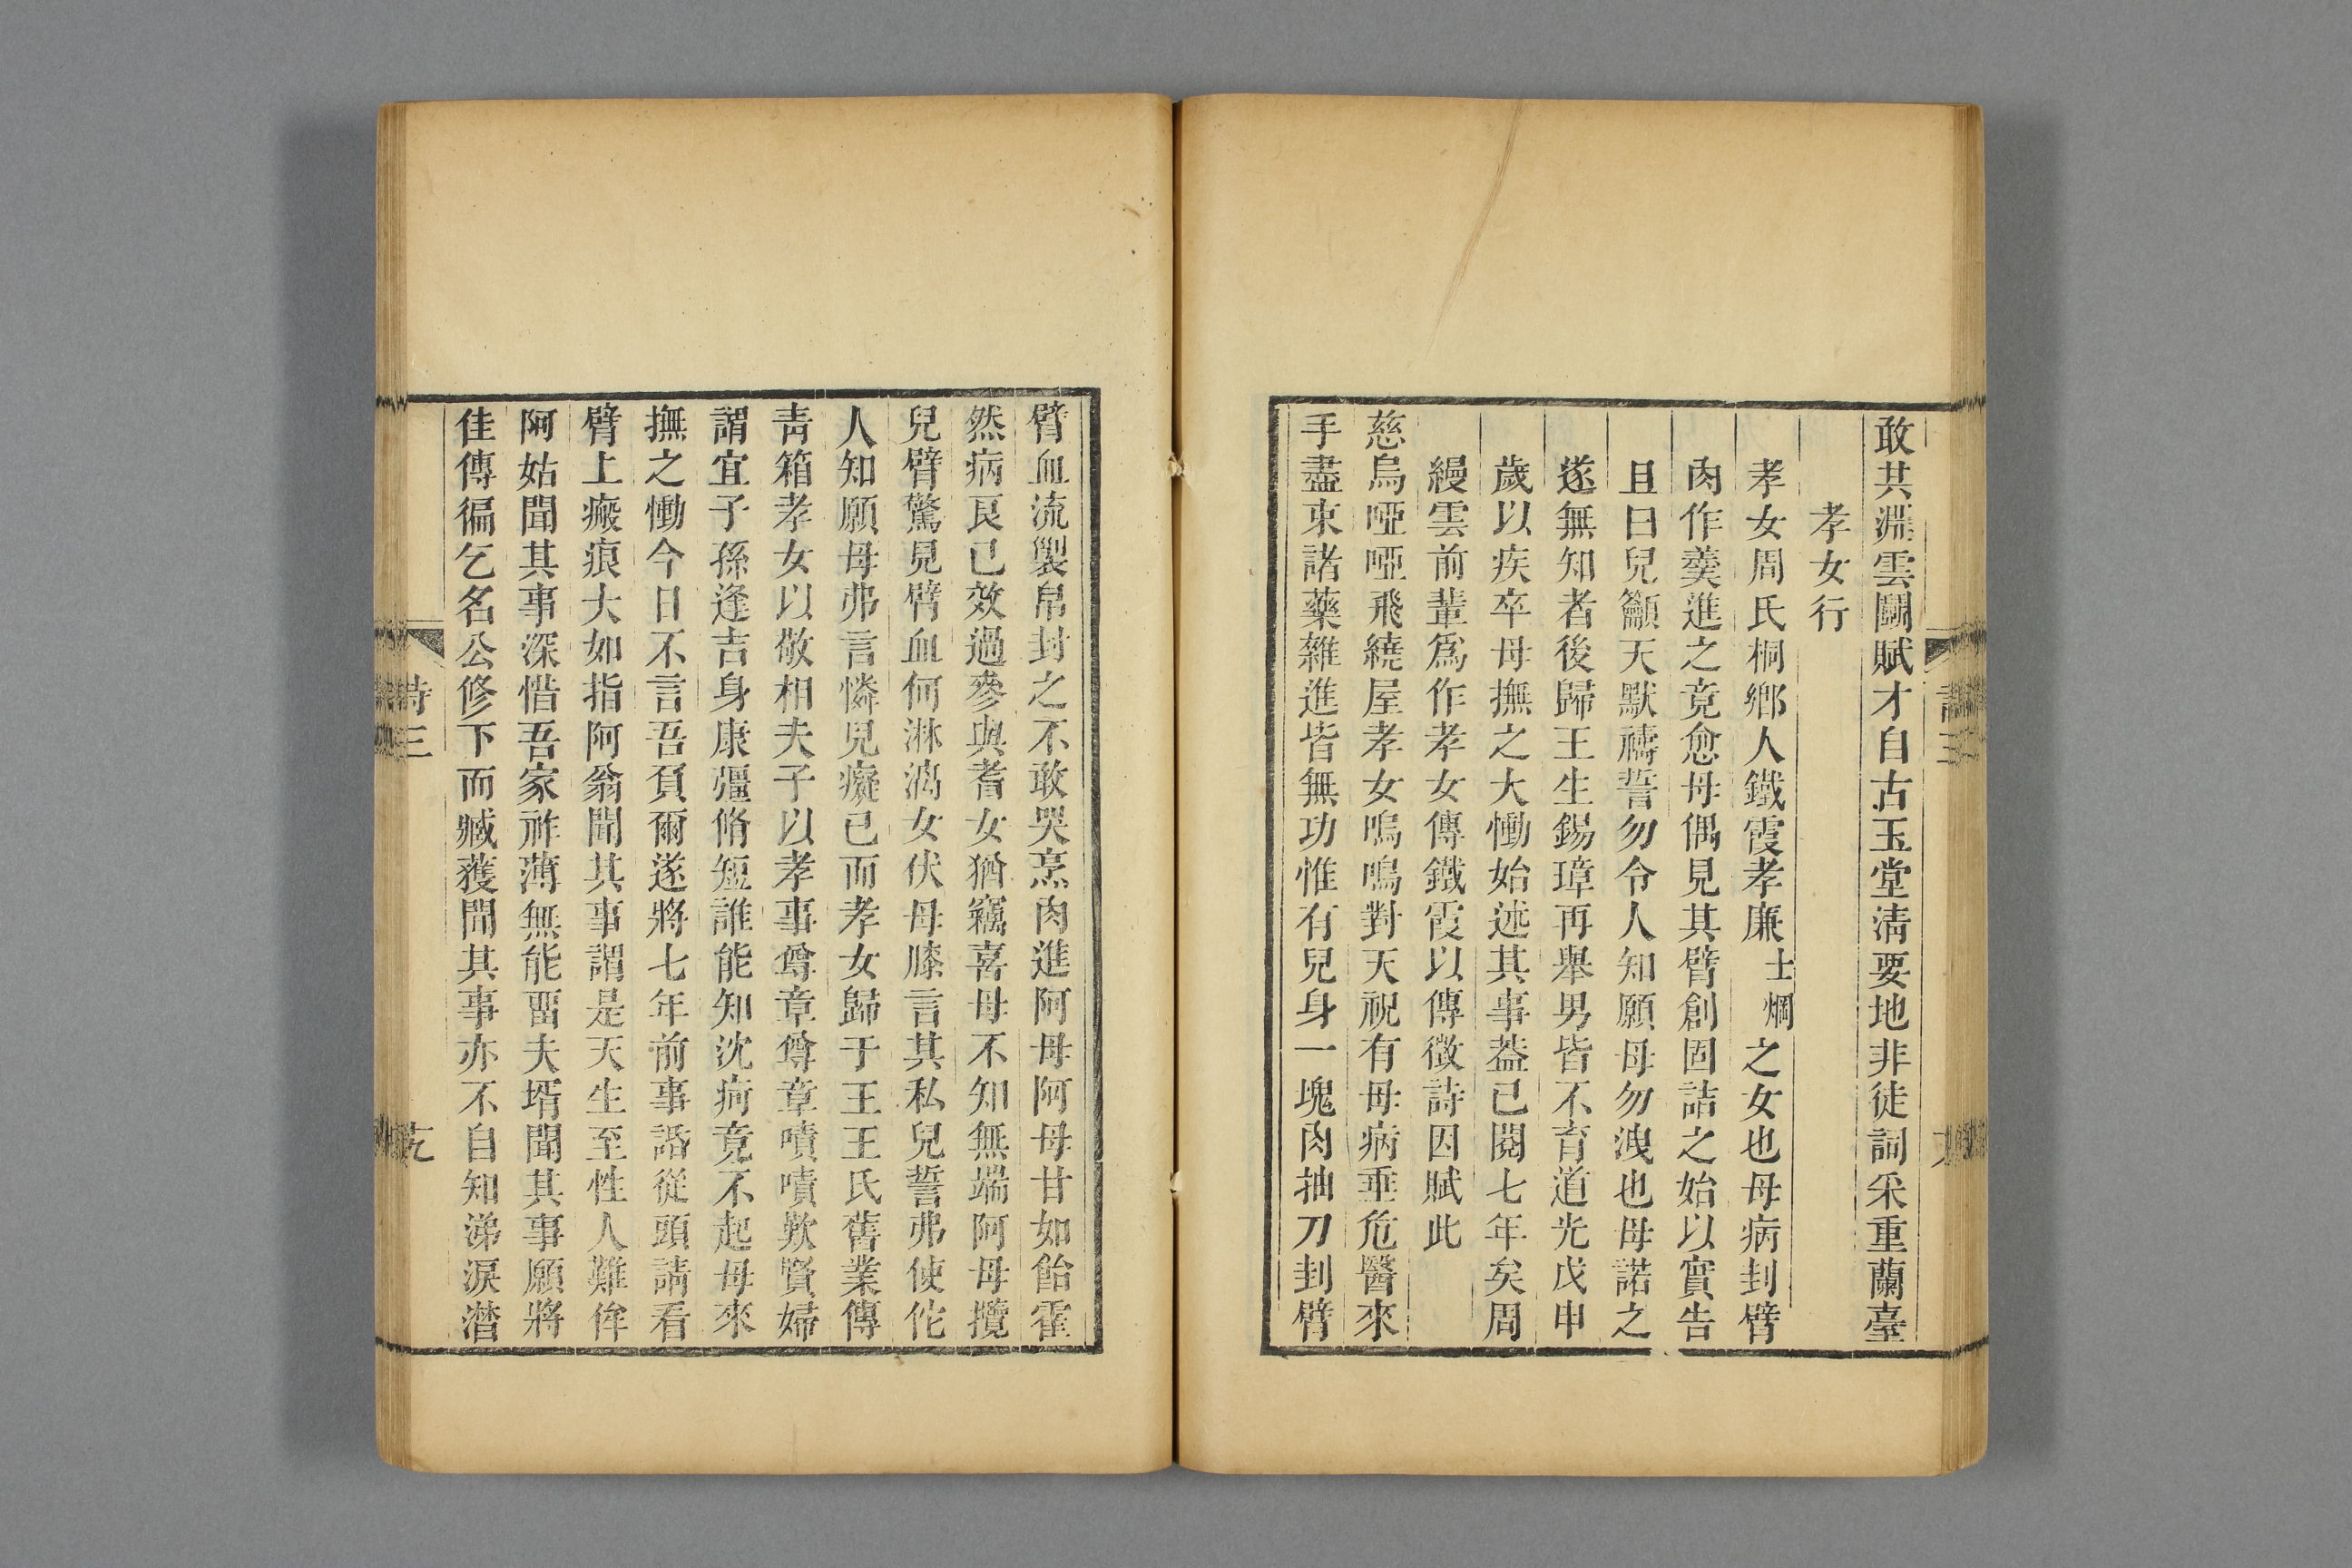 敢共淵雲鬭賦才自古玉堂清要地非徒詞采重蘭臺
孝女行
孝女周氏桐鄉人鐵霞孝廉士烱之女也母病刲臂
肉作羹進之竟愈母偶見其臂創固詰之始以實告
且曰兒籲天默禱誓勿令人知願母勿洩也母諾之
遂無知者後歸王生錫璋再舉男皆不育道光戊申
歲以疾卒母撫之大慟始述其事葢已閱七年矣周
縵雲前輩爲作孝女傳鐵霞以傳徵詩因賦此
慈烏啞啞飛繞屋孝女嗚嗚對天祝有母病垂危醫來
手盡束諸藥雜進皆無功惟有兒身一塊肉抽刀刲臂
臂血流製帛封之不敢哭烹肉進阿母阿母甘如飴霍
然病良已效過蔘與耆女猶竊喜母不知無端阿母攬
兒臂驚見臂血何淋漓女伏母膝言其私兒誓弗使佗
人知願母弗言憐兒癡已而孝女歸于王王氏舊業傳
靑箱孝女以敬相夫子以孝事尊章尊章嘖嘖歎賢婦
謂宜子孫逢吉身康彊脩短誰能知沈痾竟不起母來
撫之慟今日不言吾負爾遂將七年前事話從頭請看
臂上瘢痕大如指阿翁聞其事謂是天生至性人難侔
阿姑聞其事深惜吾家祚薄無能畱夫壻聞其事願將
佳傳徧乞名公修下而臧獲聞其事亦不自知涕淚潸
詩三